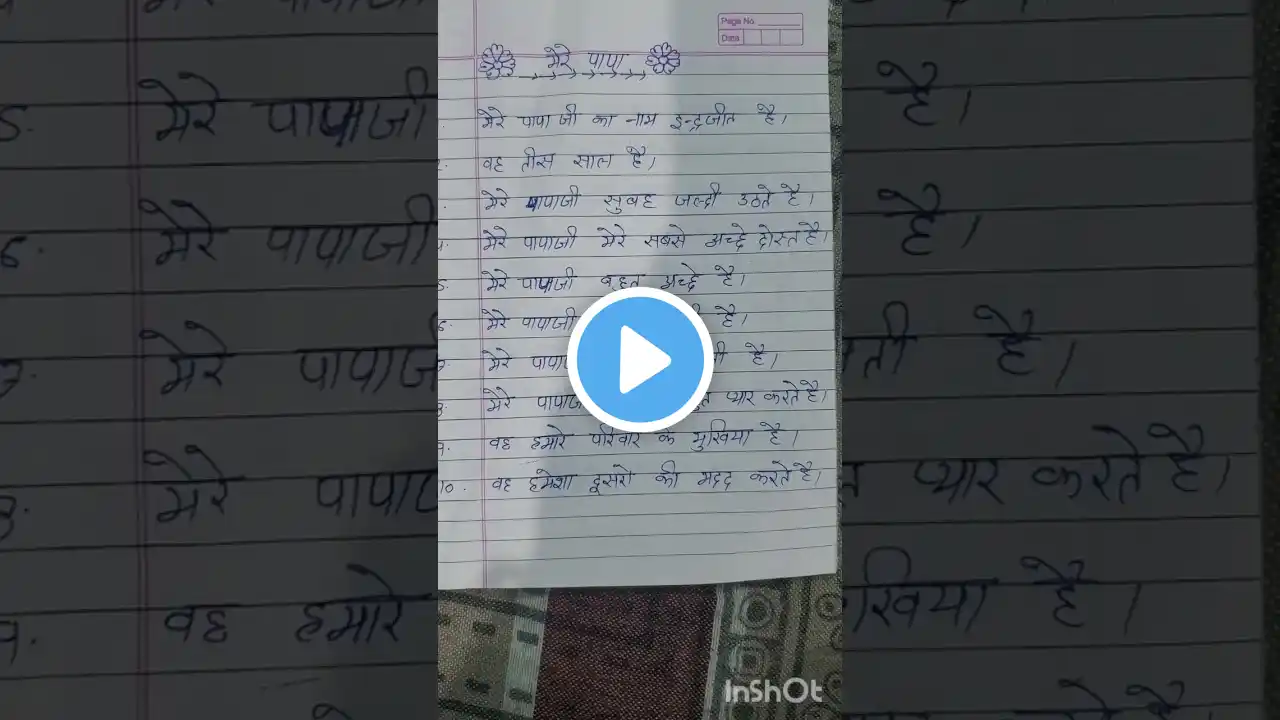 Page No.
Date
मेरे पापा
मेरे पापाजी का नाम इन्द्रजीत है।
वह तीस साल है।
मेरे पापाजी सुबह जल्दी उठते है।
मेरे पापाजी मेरे सबसे अच्छे दोस्त है।
5. मेरे पापाजी बहुत अच्छे है।
6. मेरे पापाजी है।
मेरे है।
मेरे प्यार करते है।
वह हमारे परिवार के मुखिया है।
10. वह हमेशा दूसरो की मदद करते है।
InShOt